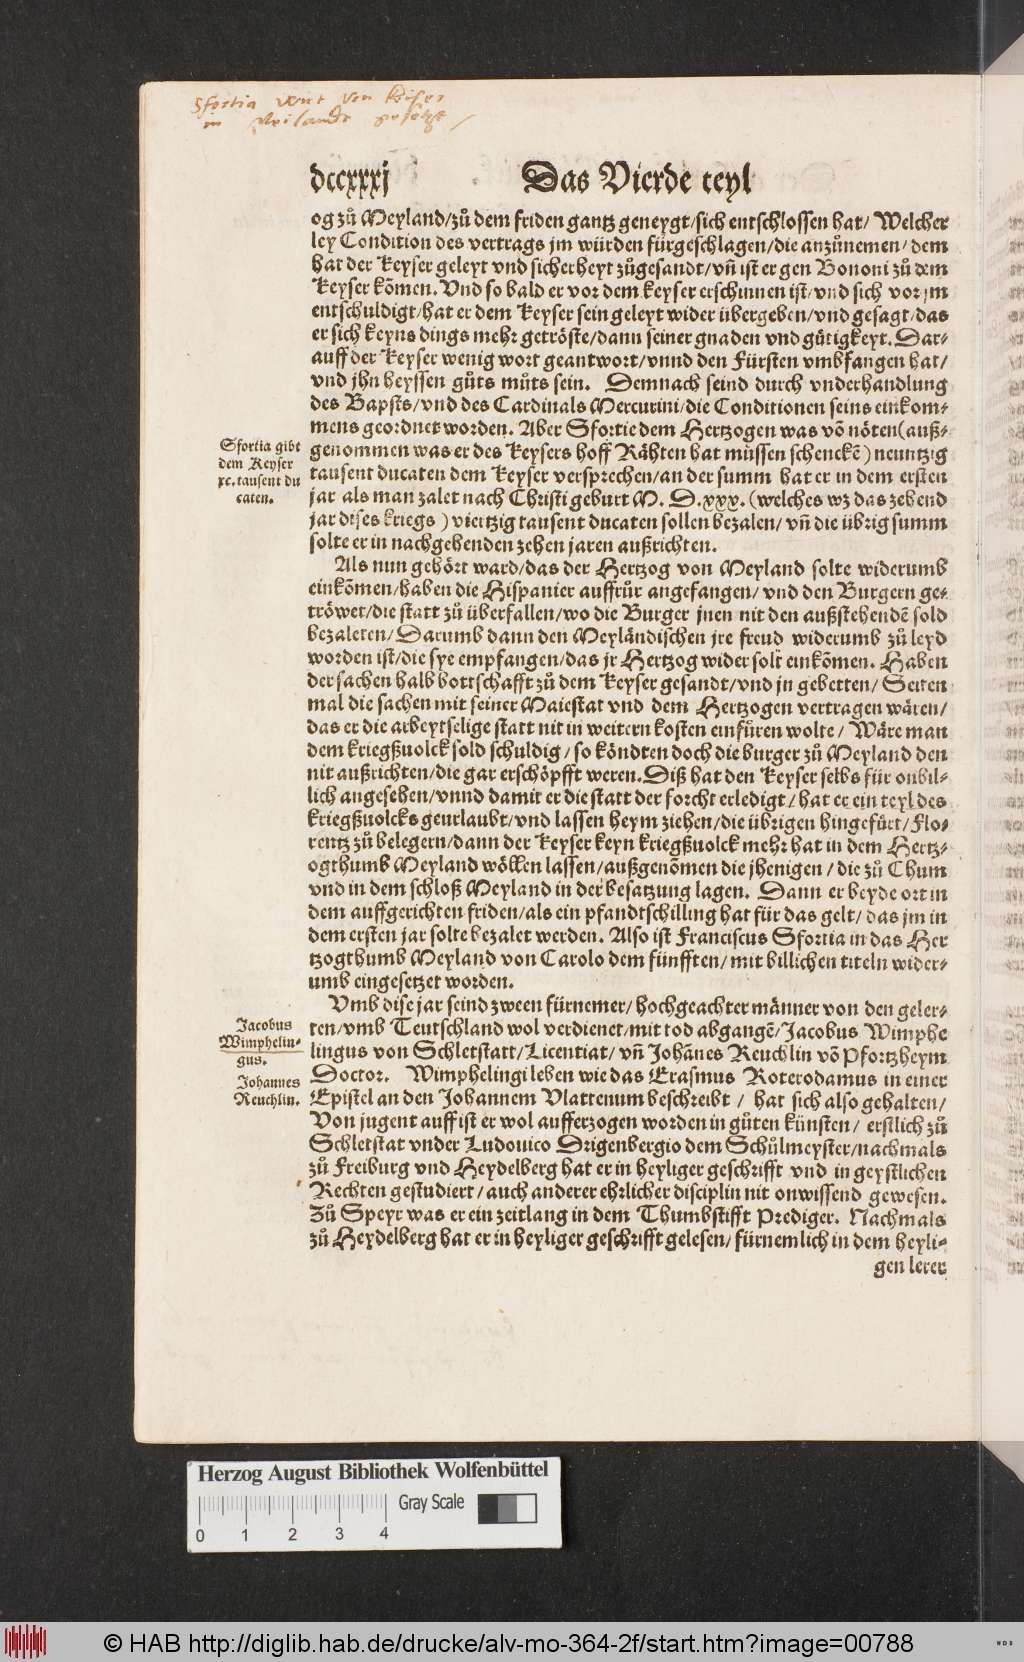 Sfortia wirt von keiser
in Meilandt gesetzt
dccxxxj Das Vierde teyl
og zů Meyland/zů dem friden gantz geneygt/sich entschlossen hat/ Welcher
ley Condition des vertrags jm würden fürgeschlagen/die anzůnemen/ dem
hat der Keyser geleyt vnd sicherheyt zůgesandt/vñ ist er gen Bononi zů dem
Keyser kõmen. Vnd so bald er vor dem keyser erschinnen ist/vnd sich vor jm
entschuldigt/hat er dem Keyser sein geleyt wider übergeben/vnd gesagt/das
er sich keyns dings mehr getröste/dann seiner gnaden vnd gütigkeyt. Dar-
auff der Keyser wenig wort geantwort/vnnd den Fürsten vmbfangen hat/
vnd jhn heyssen gůts můts sein. Demnach seind durch vnderhandlung
des Bapsts/vnd des Cardinals Mercurini/die Conditionen seins einkom-
mens geordnet worden. Aber Sfortie dem Hertzogen was võ nöten(auß-
Sfortia gibt
dem Keyser
xc.tausent du
caten.
genommen was er des Keysers hoff Rähten hat müssen schenckẽ) neuntzig
tausent ducaten dem Keyser versprechen/an der summ hat er in dem ersten
jar als man zalet nach Christi geburt M. D.xxx. (welches wz das zehend
jar dises kriegs) viertzig tausent ducaten sollen bezalen/ vñ die übrig summ
solte er in nachgehenden zehen jaren außrichten.
Als nun gehört ward/das der Hertzog von Meyland solte widerumb
einkõmen/haben die Hispanier auffrůr angefangen/ vnd den Burgern ge-
tröwet/die statt zů überfallen/wo die Burger jnen nit den außstehendẽ sold
bezaleten/Darumb dann den Meyländischen jre freud widerumb zů leyd
worden ist/die sye empfangen/das jr Hertzog wider solt einkõmen. Haben
der sachen halb bottschafft zů dem Keyser gesandt/vnd jn gebetten/ Seiten
mal die sachen mit seiner Maiestat vnd dem Hertzogen vertragen wären/
das er die arbeytselige statt nit in weitern kosten einfůren wolte/ Wäre man
dem kriegßuolck sold schuldig/so köndten doch die burger zů Meyland den
nit außrichten/die gar erschöpfft weren. Diß hat den Keyser selbs für onbil-
lich angesehen/vnnd damit er die statt der forcht erledigt/hat er ein teyl des
kriegßuolcks geurlaubt/vnd lassen heym ziehen/die übrigen hingefürt/Flo-
rentz zů belegern/dann der Keyser keyn kriegßuolck mehr hat in dem Hertz-
ogthumb Meyland wöllen lassen/außgenõmen die jhenigen/ die zů Chum
vnd in dem schloß Meyland in der besatzung lagen. Dann er beyde ort in
dem auffgerichten friden/als ein pfandtschilling hat für das gelt/ das jm in
dem ersten jar solte bezalet werden. Also ist Franciscus Sfortia in das Her
tzogthumb Meyland von Carolo dem fünfften/mit billichen titeln wider-
umb eingesetzet worden.
Vmb dise jar seind zween fürnemer/ hochgeachter männer von den geler-
Jacobus
Wimphelin-
gus.
Johannes
Reuchlin.
ten/vmb Teutschland wol verdienet/mit tod abgangẽ/Jacobus Wimphe
lingus von Schletstatt/Licentiat/ vñ Johãnes Reuchlin võ Pfortzheym
Doctor. Wimphelingi leben wie das Erasmus Roterodamus in einer
Epistel an den Johannem Vlattenum beschreibt/ hat sich also gehalten/
Von jugent auff ist er wol aufferzogen worden in gůten künsten/ erstlich zů
Schletstat vnder Ludouico Drigenbergio dem Schůlmeyster/nachmals
zů Freiburg vnd Heydelberg hat er in heyliger geschrifft vnd in geystlichen
Rechten gestudiert/auch anderer ehrlicher disciplin nit onwissend gewesen.
Zů Speyr was er ein zeitlang in dem Thumbstifft Prediger. Nachmals
zů Heydelberg hat er in heyliger geschrifft gelesen/ fürnemlich in dem heyli-
gen lerer
Herzog August Bibliothek Wolfenbüttel
Gray Scale
0 1 2 3 4
© HAB http://diglib.hab.de/drucke/alv-mo-364-2f/start.htm?image=00788